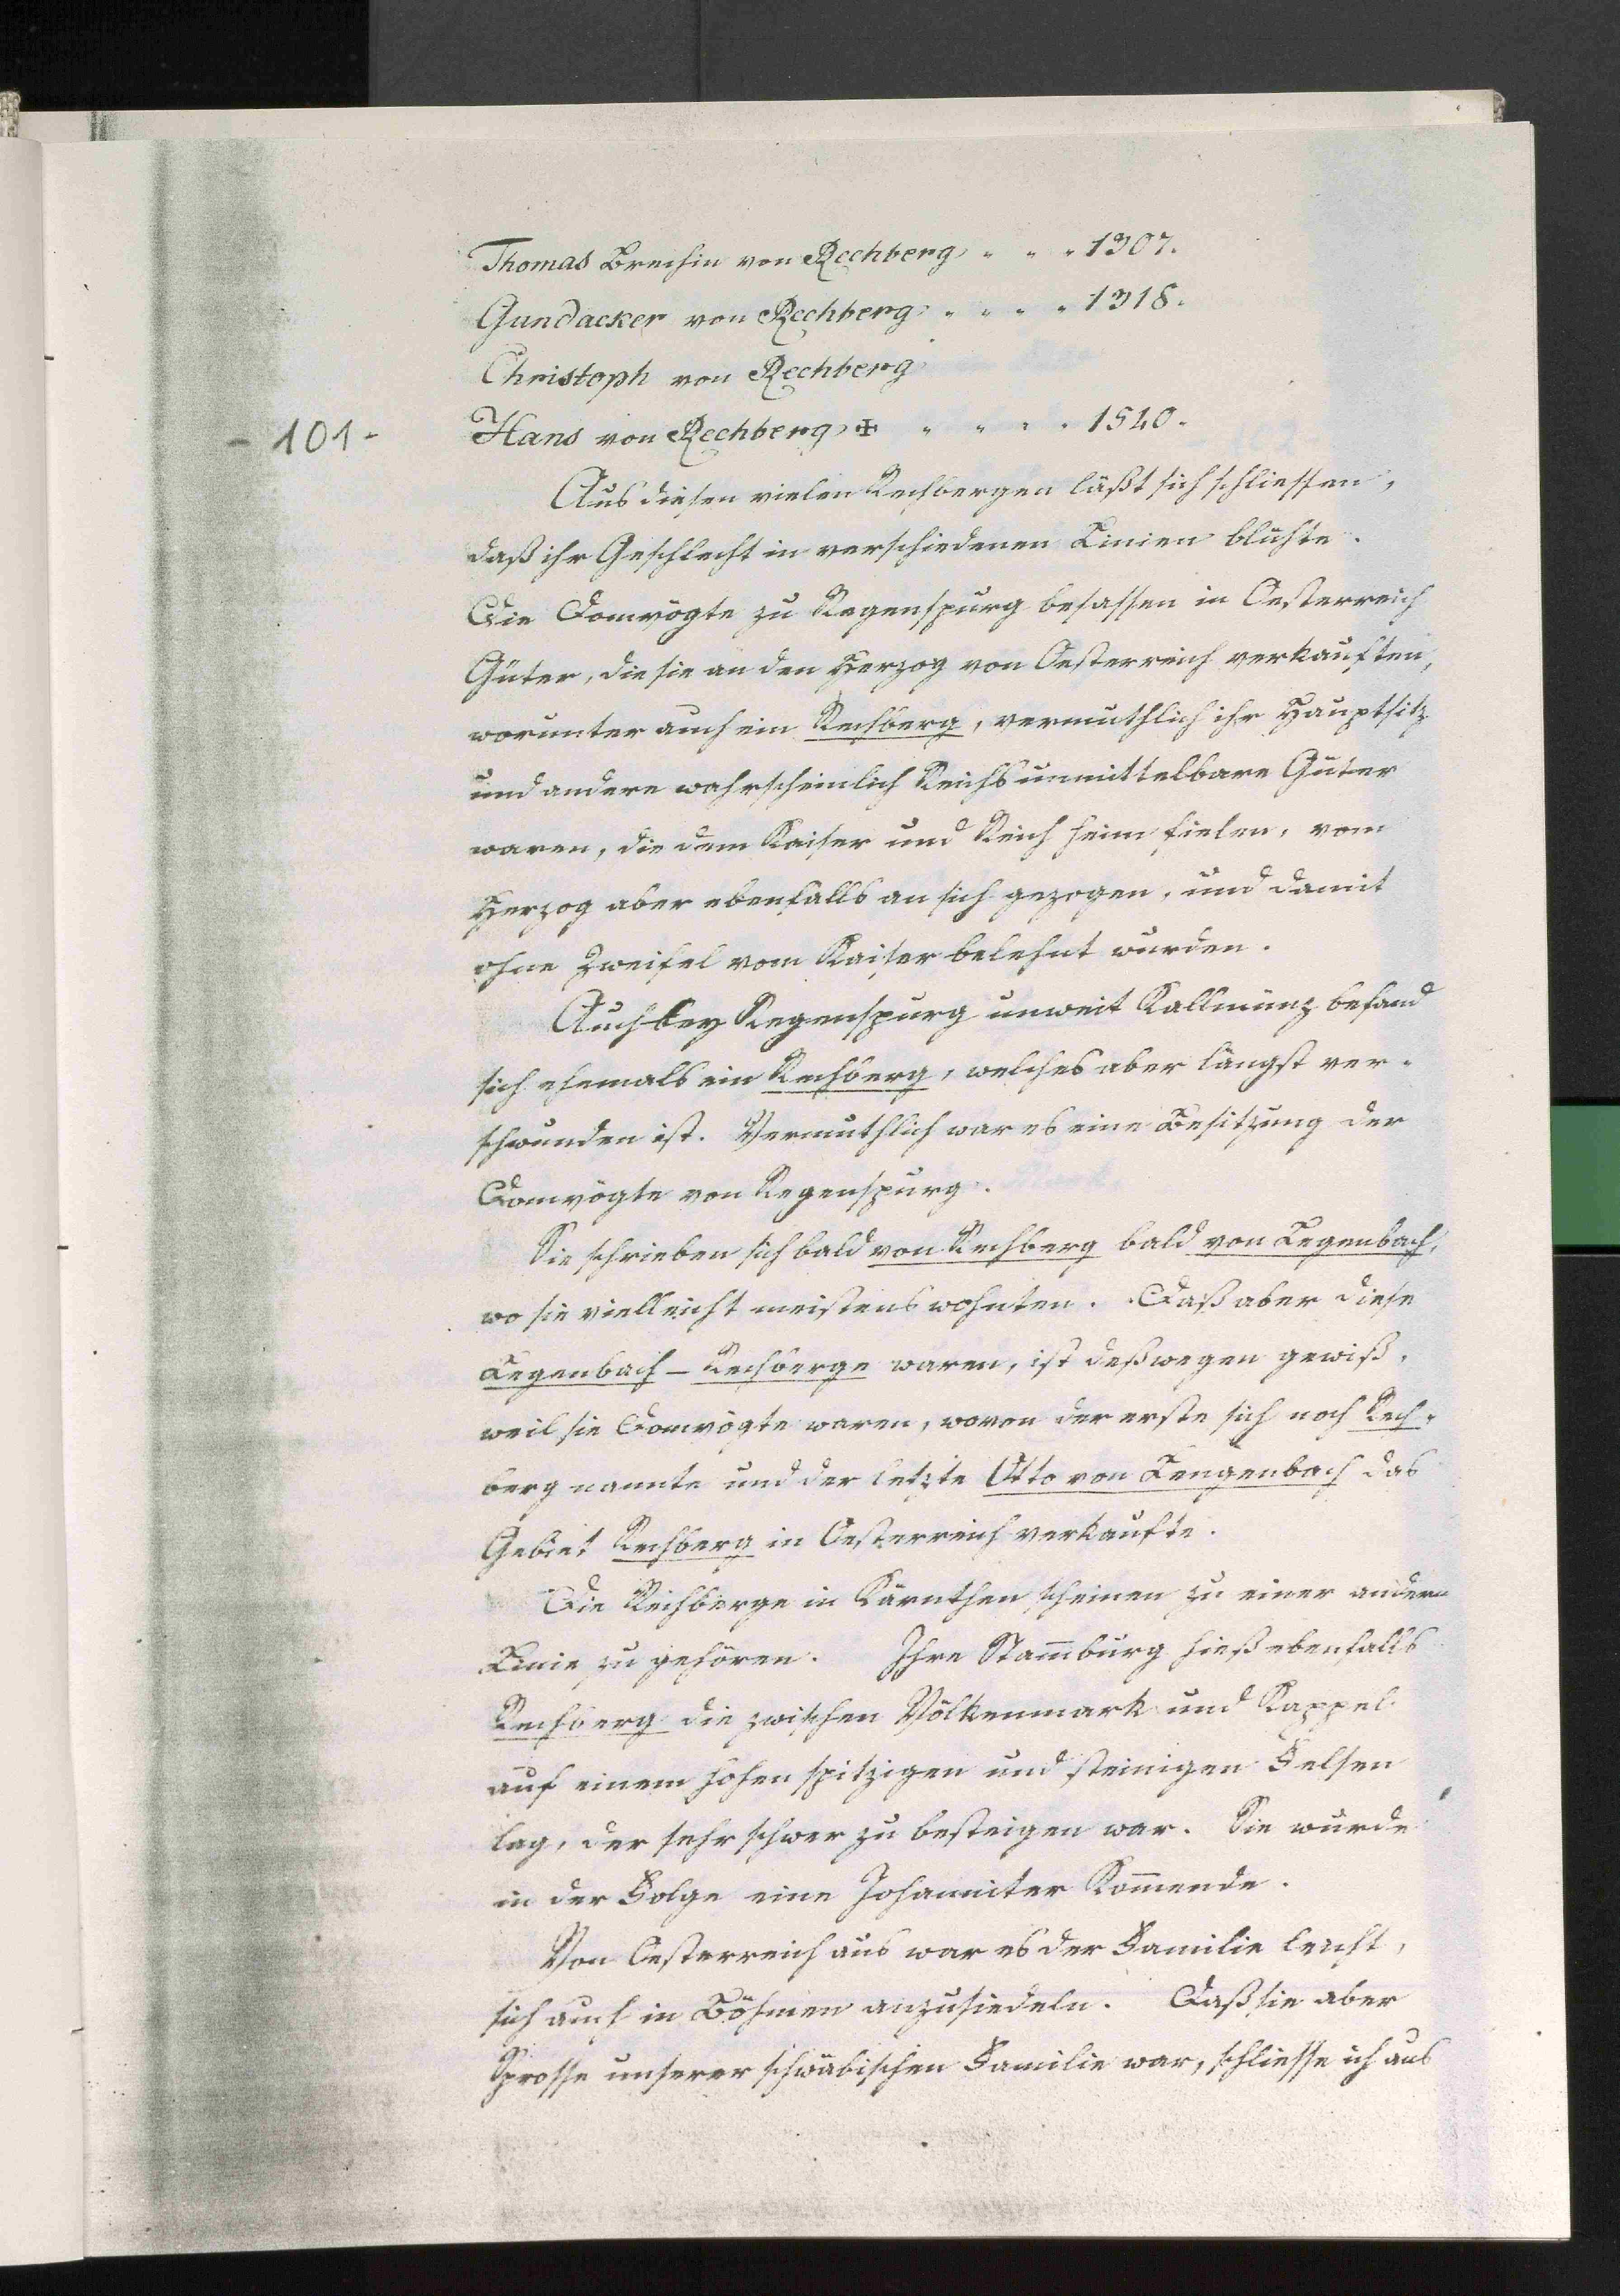 Thomas Brechin von Rechberg „ „ „ 1307.
Gundacker von Rechberg „ „ „ „ 1318.
Christoph von Rechberg
- 101 -
Hans von Rechberg ✠ „ „ „ „ 1540.
Aus diesen vielen Rechbergen läßt sich schliessen,
daß ihr Geschlecht in verschiedenen Linien blühte.
Die Domvögte zu Regenspurg besassen in Oesterreich
Güter, die sie an den Herzog von Oesterreich verkauften,
worunter auch ein Rechberg, vermuthlich ihr Hauptsitz
und andere wahrscheinlich Reichsunmittelbare Güter
waren, die dem Kaiser und Reich heim fielen, vom
Herzog aber ebenfalls an sich gezogen, und damit
ohne Zweifel vom Kaiser belehnt wurden.
Auch bey Regenspurg unweit Kallmünz befand
sich ehemals ein Rechberg, welches aber längst ver-
schwunden ist. Vermuthlich war es eine Besitzung der
Domvögte von Regenspurg.
Sie schrieben sich bald von Rechberg bald von Legenbach,
wo sie vielleicht meistens wohnten. Daß aber diese
Legenbach - Rechberge waren, ist deßwegen gewiß,
weil sie Domvögte waren, wovon der erste sich noch Rech-
berg nannte und der letzte Otto von Lengenbach das
Gebiet Rechberg in Oesterreich verkaufte.
Die Rechberge in Kärnthen scheinen zu einer andern
Linie zu gehören. Ihre Stam̅burg hieß ebenfalls
Rechberg die zwischen Völkenmark und Kappel
auf einem hohen spitzigen und steinigen Felsen
lag, der sehr schwer zu besteigen war. Sie wurde
in der Folge eine Johanniter Kom̅ende.
Von Oesterreich aus war es der Familie leicht,
sich auch in Böhmen anzusiedeln. Daß sie aber
Sprosse unserer schwäbischen Familie war, schliesse ich aus